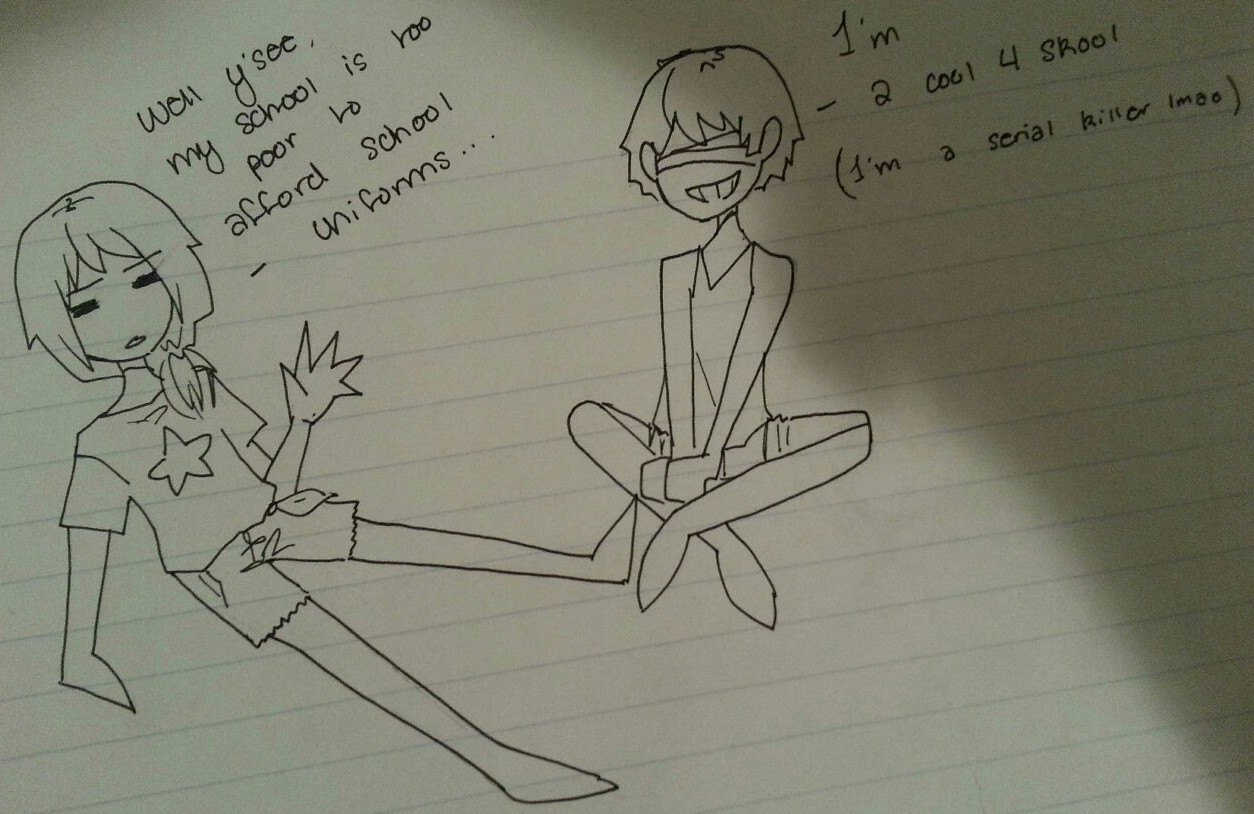 Well y'see,
my school is too
poor to
afford school
uniforms...
I'm
2 cool 4 skool
(I'm a serial killer lmao)